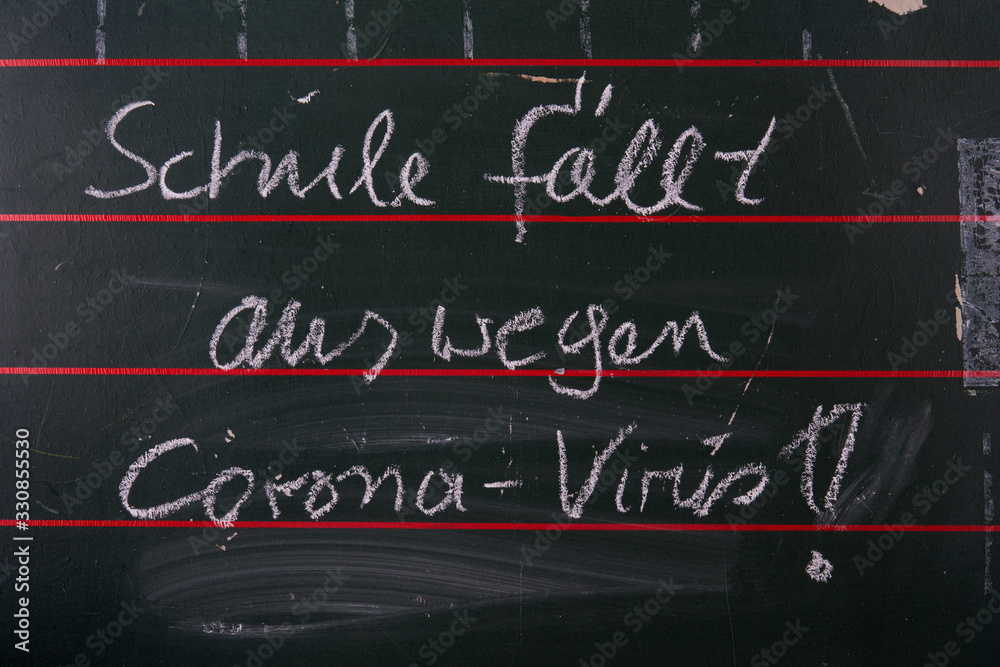 Schule fällt
aus wegen
Corona-Virus!
Adobe Stock | #330855530